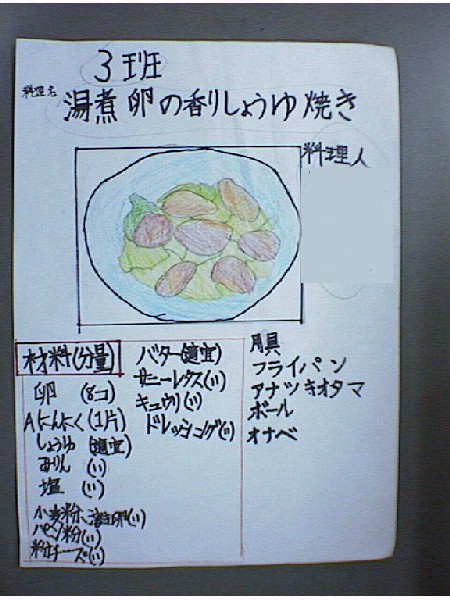 3班
料理名
湯煮卵の香りしょうゆ焼き
料理人
材料(分量)
卵 (8コ)
Aにんにく(1片)
しょうゆ (適宜)
みりん (〃)
塩 (〃)
小麦粉、溶き卵(〃)
パン粉(〃)
粉チーズ(〃)
バター(適宜)
サニーレタス(〃)
キュウリ(〃)
ドレッシング(〃)
用具
フライパン
アナツキオタマ
ボール
オナベ